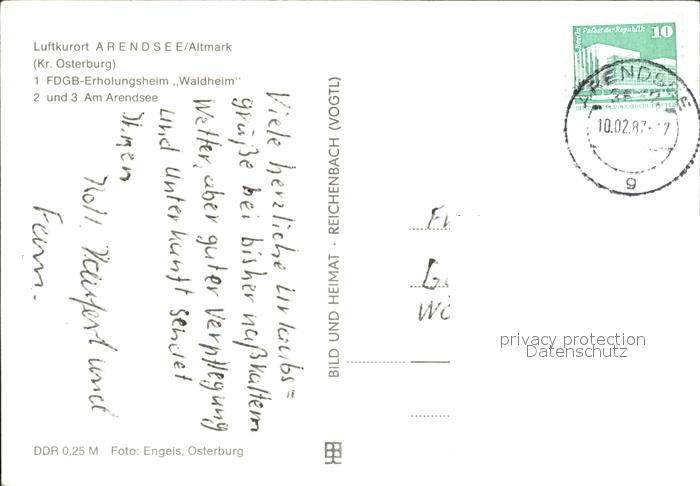 Luftkurort ARENDSEE/Altmark
(Kr. Osterburg)
1 FDGB-Erholungsheim „Waldheim"
2 und 3 Am Arendsee
Viele herzliche Urlaubs=
grüße bei bisher naßkaltem
Wetter, aber guter Verpflegung
und Unterkunft sendet
Ihnen
und
Fam.
DDR 0,25 M Foto: Engels, Osterburg
BILD UND HEIMAT · REICHENBACH (VOGTL)
Berlin Palast der Republik 10
ARENDSEE
10.02.87-17
g
privacy protection
Datenschutz